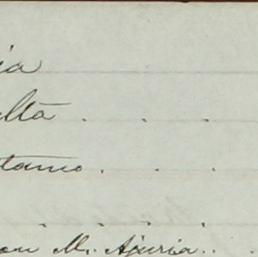 ia
lta . . .
tamo . . .
. . . .
on M. Ajuria . .